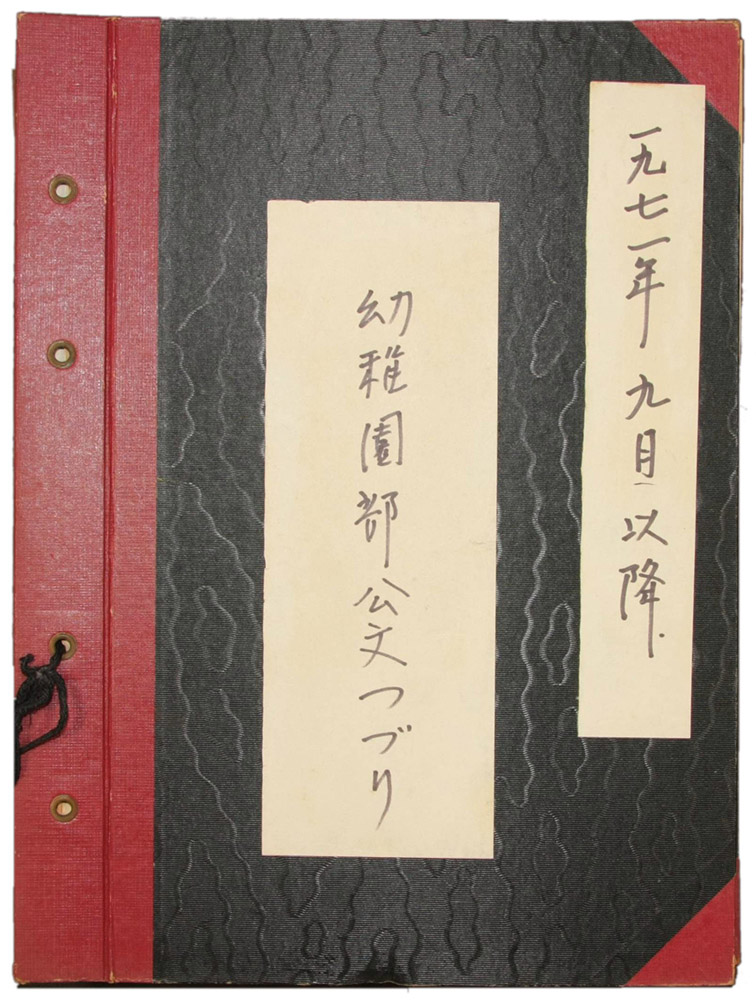 一九七一年九月以降
幼稚園部公文つづり